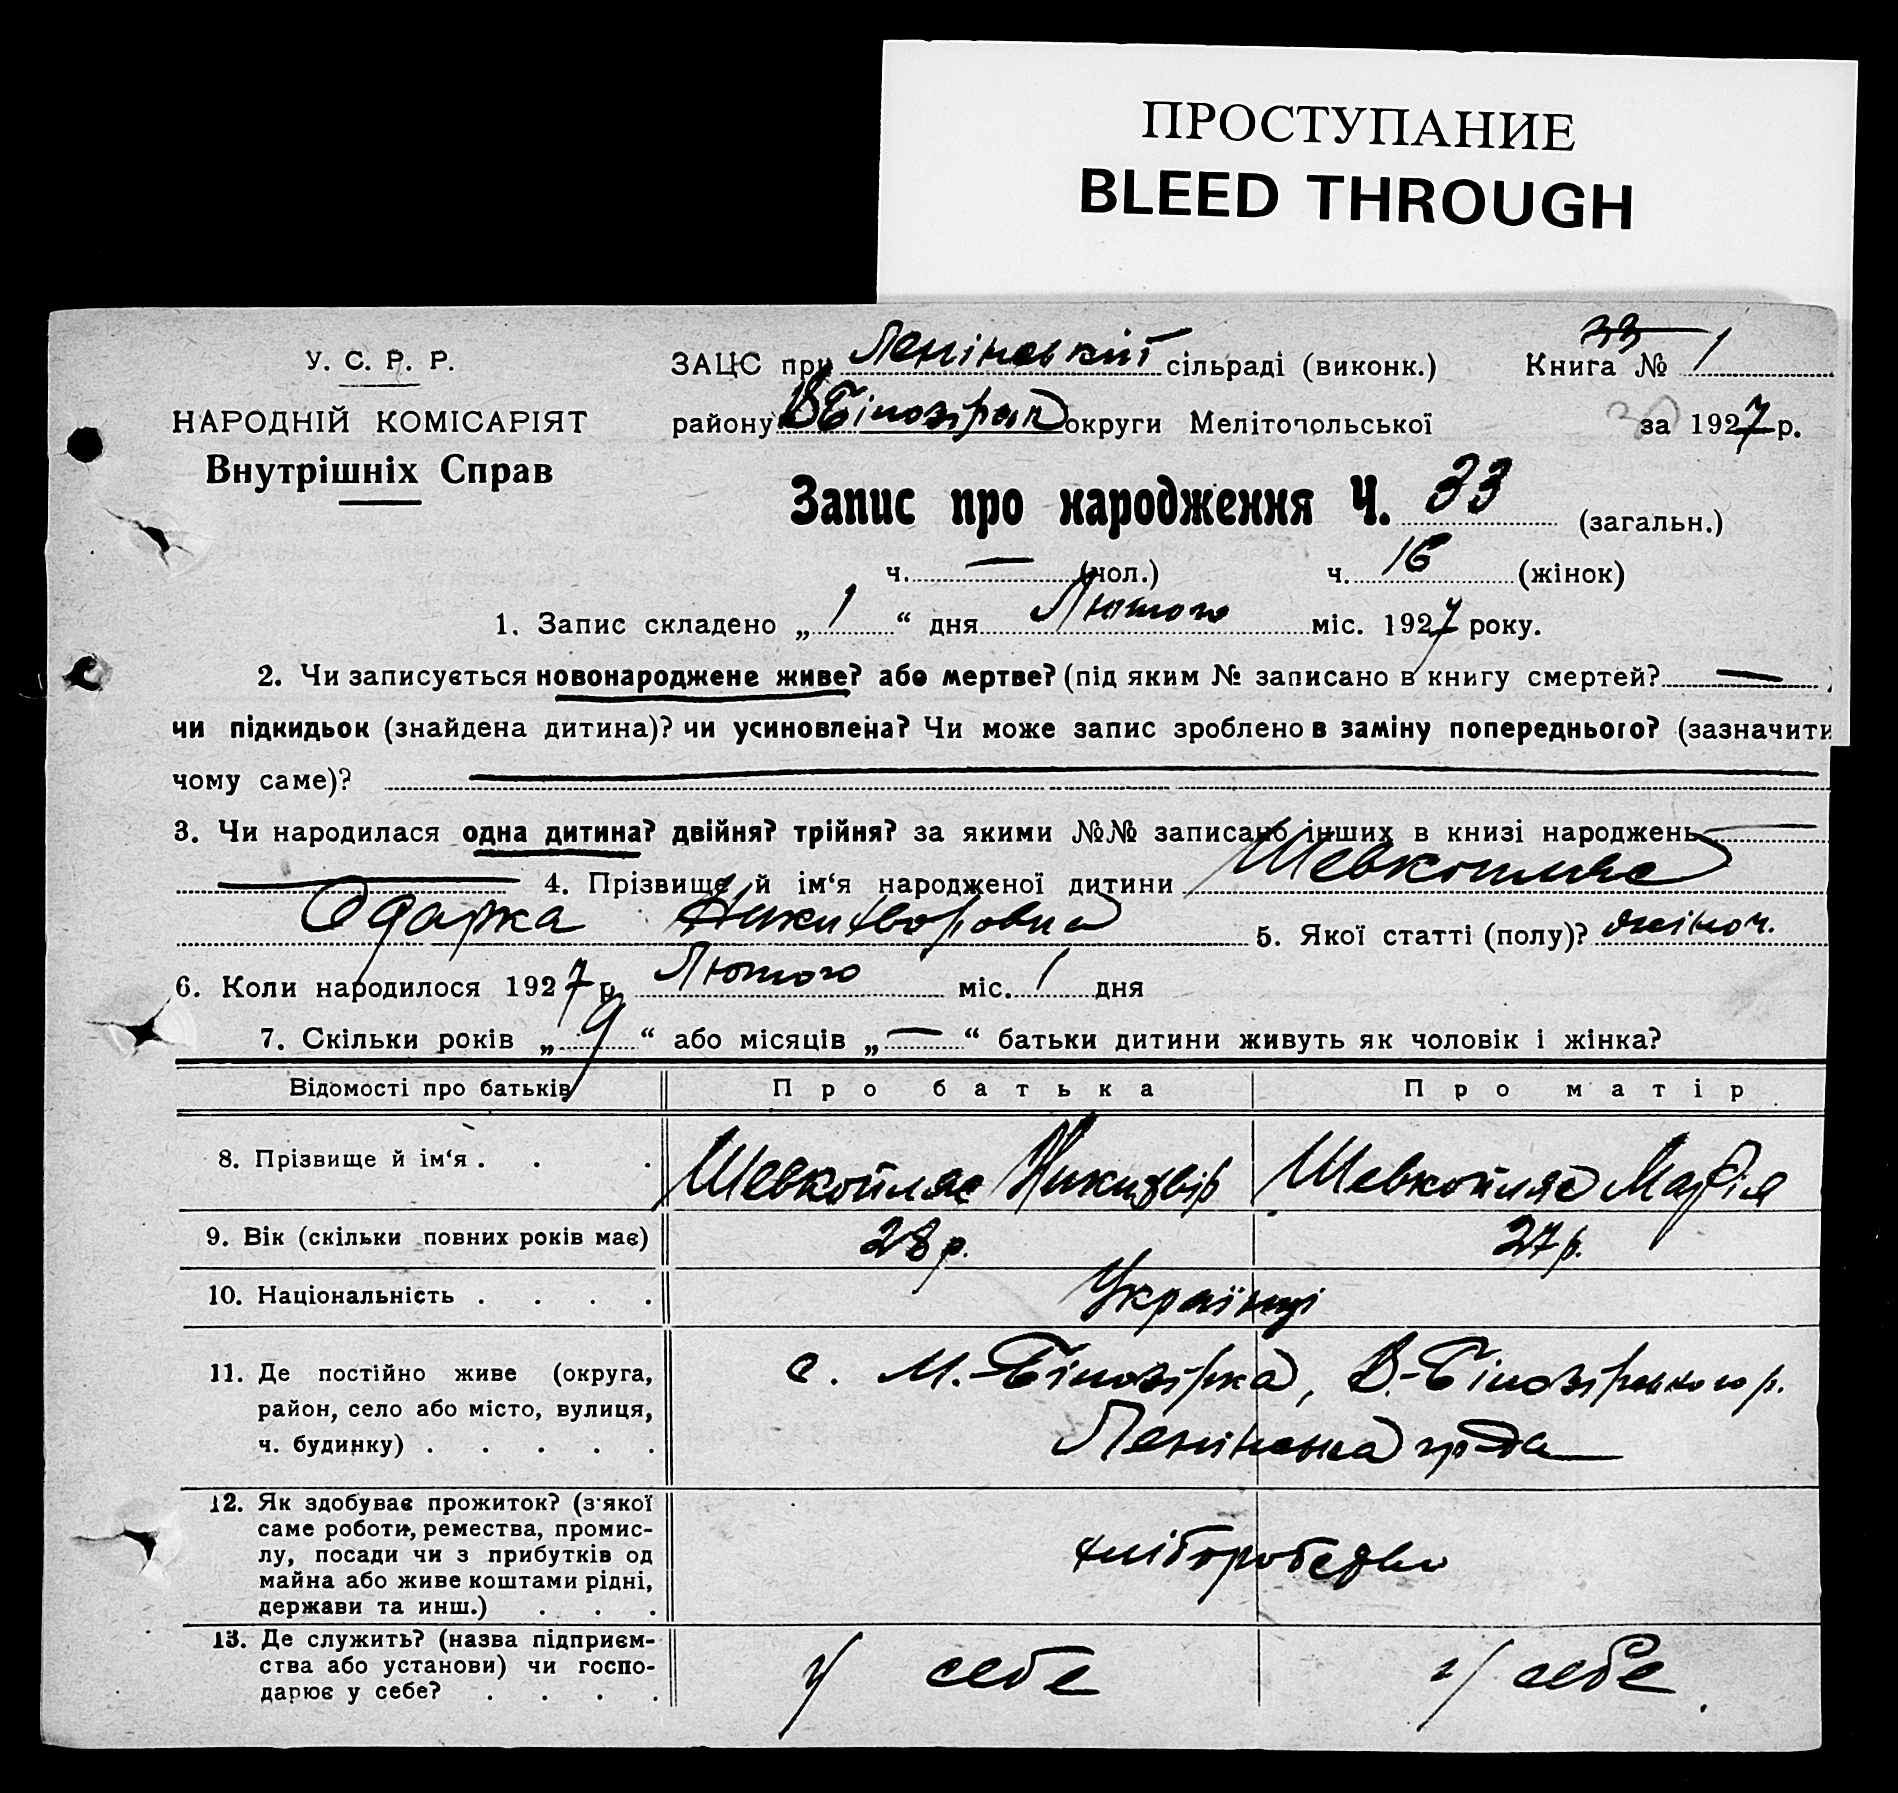 ПРОСТУПАНИЕ
BLEED THROUGH
У. С. Р. Р.
НАРОДНІЙ КОМІСАРІЯТ
Внутрішніх Справ
ЗАЦС при Ленінській сільраді (виконк.) Книга № 33 1
району В Білозірськ округи Мелітопольської за 1927 р.
Запис про народження Ч. 33 (загальн.)
ч. — (чол.) ч. 16 (жінок)
1. Запис складено „ 1 “ дня Лютого міс. 1927 року.
2. Чи записується новонароджене живе? або мертве? (під яким № записано в книгу смертей? —
чи підкидьок (знайдена дитина)? чи усиновлена? Чи може запис зроблено в заміну попереднього? (зазначити
чому саме)? —
3. Чи народилася одна дитина? двійня? трійня? за якими №№ записано інших в книзі народжень —
— 4. Прізвище й ім‘я народженої дитини Шевкопляс
Одарка Никифоровна 5. Якої статті (полу)? жіноч.
6. Коли народилося 1927 р. Лютого міс. 1 дня
7. Скільки років „ 9 “ або місяців „ — “ батьки дитини живуть як чоловік і жінка?
Відомості про батьків Про батька Про матір
8. Прізвище й ім‘я . . . Шевкопляс Никифір Шевкопляс Марія
9. Вік (скільки повних років має) 28 р. 27 р.
10. Національність . . . . Українці
11. Де постійно живе (округа,
район, село або місто, вулиця,
ч. будинку) . . . . .
с. М.-Білозірка, В.-Білозірського р.
Ленінська
12. Як здобуває прожиток? (з‘якої
саме роботи, ремества, промис-
лу, посади чи з прибутків од
майна або живе коштами рідні,
держави та инш.) . . .
хліборобство
13. Де служить? (назва підприєм-
ства або установи) чи госпо-
дарює у себе? . . . .
у себе у себе.